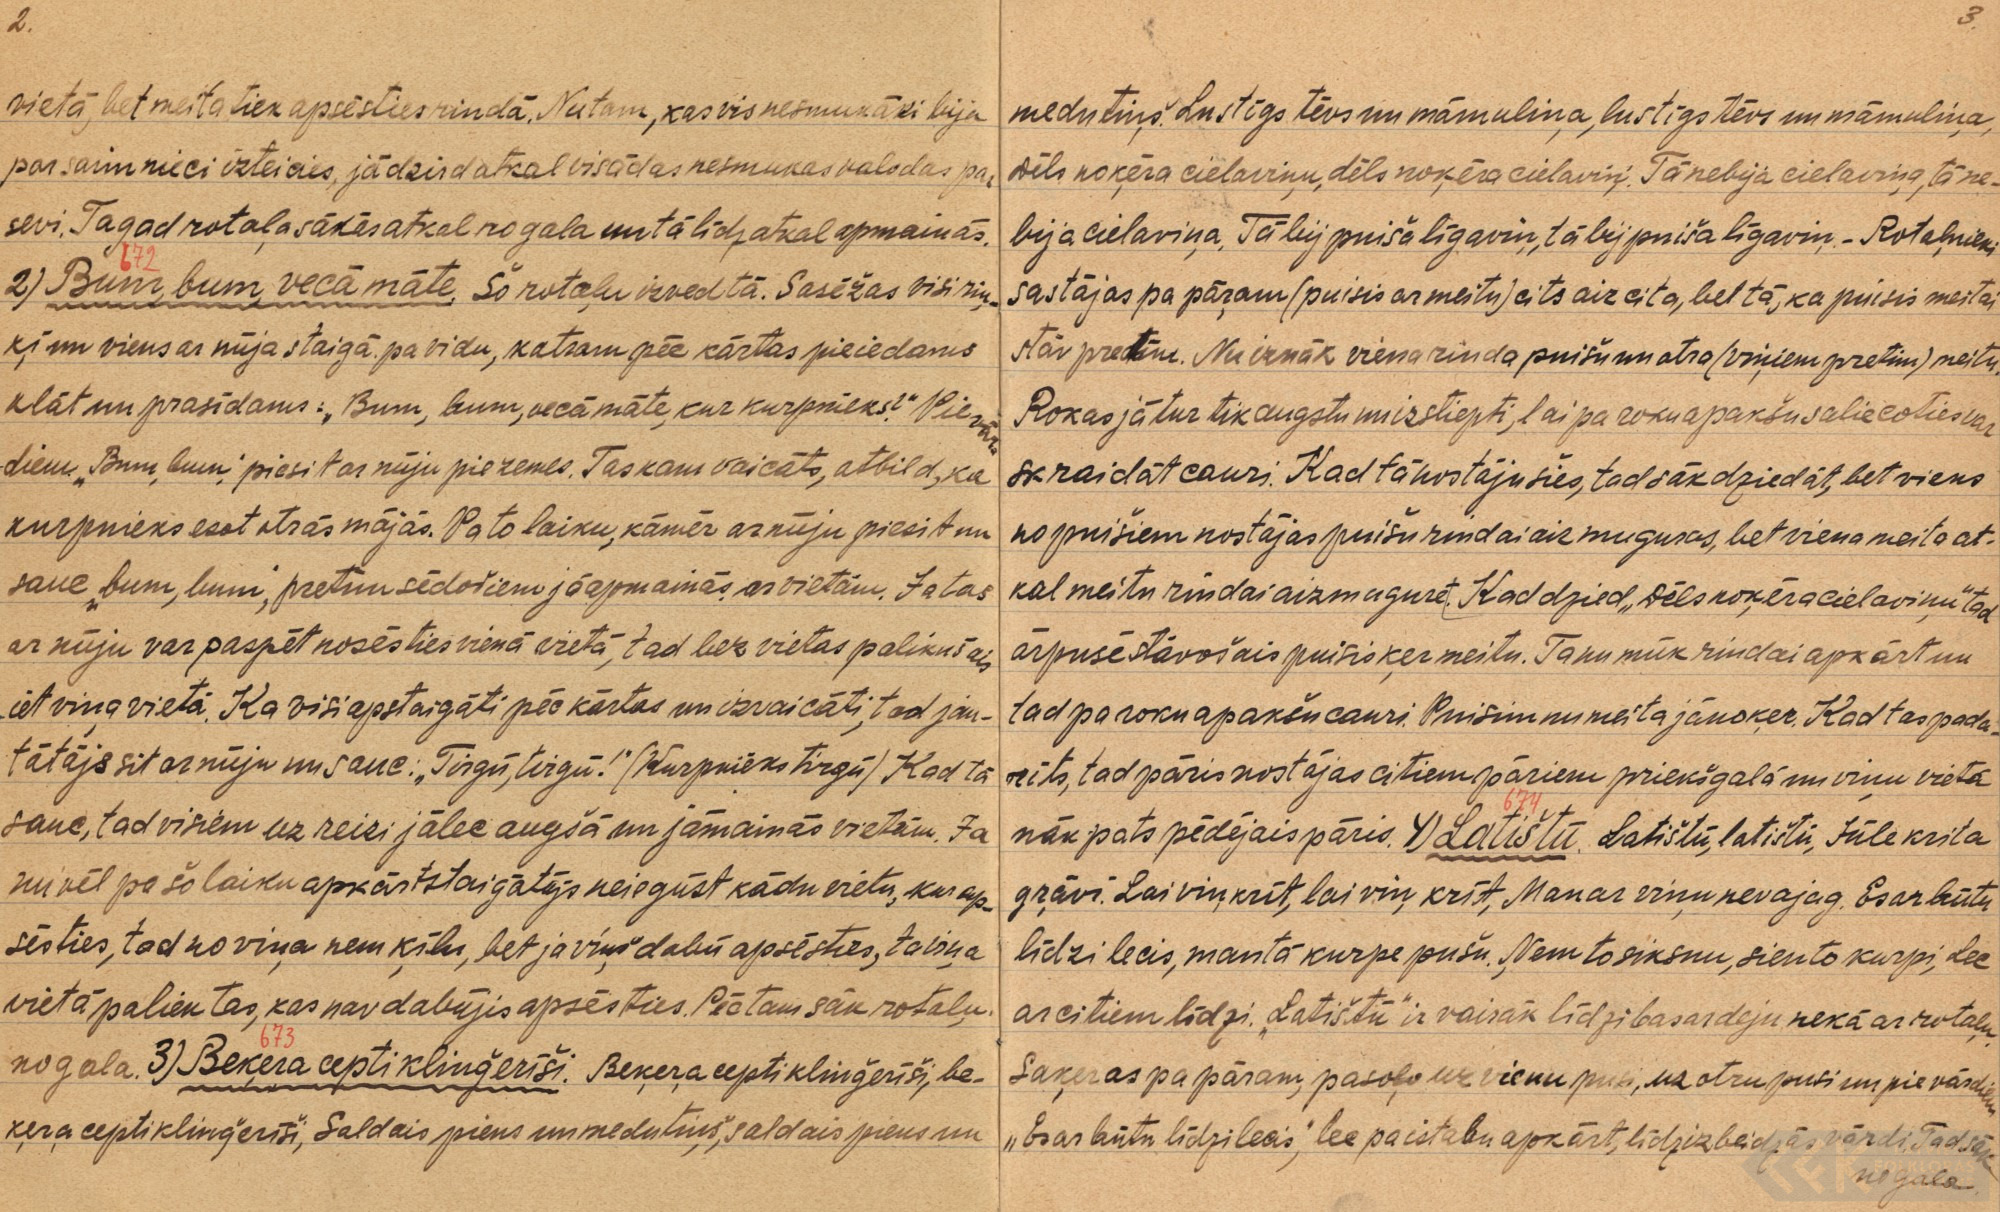 2.
vietā, bet meita tiek apsēsties rindā. Nu tam, kas vis nesmukāki bija
par saimnieci izteicies, jādzird atkal visādas nesmukas valodas par
sevi. Tagad rotaļa sākās atkal no gala un tā līdz atkal apmainās.
672
2) Bum, bum, vecā māte. Šo rotaļu izved tā. Sasēžas visi riņ-
ķī un viens ar nūju staigā pa vidu, katram pēc kārtas pieiedams
klāt un prasīdams: „Bum, bum, vecā māte, kur kurpnieks?" Pie vār-
diem „Bum, bum," piesit ar nūju pie zemes. Tas kam vaicāts, atbild, ka
kurpnieks esot otrās mājās. Pa to laiku, kāmēr ar nūju piesit un
sauc „bum, bum", pretim sēdošiem jāapmainās ar vietām. Ja tas
ar nūju var paspēt nosēsties vienā vietā, tad bez vietas palikušais
iet viņa vietā. Ka visi apstaigāti pēc kārtas un izvaicāti, tad jau-
tātājs sit ar nūju un sauc: „Tirgū, tirgū!" (Kurpnieks tirgū) Kad tā
sauc, tad visiem uz reizi jālec augšā un jāmainās vietām. Ja
nu vēl pa šo laiku apkārtstaigātājs neiegūst kādu vietu, kur ap-
sēsties, tad no viņa ņem ķīlu, bet ja viņš dabū apsēsties, ta viņa
vietā paliek tas, kas nav dabūjis apsēsties. Pēc tam sāk rotaļu
673
no gala. 3) Beķeŗa cepti kliņģerīši. Beķeŗa cepti kliņģerīši, be-
ķeŗa cepti kliņģerīši, Saldais piens un medutiņš, saldais piens un
3.
medutiņš. Lustīgs tēvs un māmuliņa, lustīgs tēvs un māmuliņa,
Dēls noķēra cielaviņu, dēls noķēra cielaviņ. Tā nebija cielaviņa, tā ne-
bija cielaviņa, Tā bij puiša līgaviņ, tā bij puiša līgaviņ. - Rotaļnieki
sastājas pa pāŗam (puisis ar meitu) cits aiz cita, bet tā, ka puisis meitai
stāv pretim. Nu iznāk viena rinda puišu un otra (viņiem pretim) meitu.
Rokas jātur tik augstu un izstiepti, lai pa roku apakšu saliecoties var
skraidāt cauri. Kad tā nostājušies, tad sāk dziedāt, bet viens
no puišiem nostājas puišu rindai aiz muguras, bet viena meita at-
kal meitu rindai aizmugurē. Kad dzied „Dēls noķēra cielaviņu" tad
ārpusē stāvošais puisis ķer meitu. Ta nu mūk rindai apkārt un
tad pa roku apakšu cauri. Puisim nu meita jānoķer. Kad tas pada-
rīts, tad pāris nostājas citiem pāriem priekšgalā un viņu vietā
674
nāk pats pēdējais pāris. 4) Latištū. Latištū, latištū, Jūle krita
grāvī. Lai viņ krīt, lai viņ krīt, Man ar viņu nevajag. Es ar būtu
līdzi lecis, man tā kurpe pušu. Ņem to siksnu, sien to kurpi, Lec
ar citiem līdzi. „Latištū" ir vairāk līdzības ar deju nekā ar rotaļu.
Saķeras pa pāram, pasoļo uz vienu pusi, uz otru pusi un pie vārdiem
„Es ar būtu līdzi lecis," lec pa istabu apkārt, līdz izbeidzās vārdi. Tad sāk
no gala.